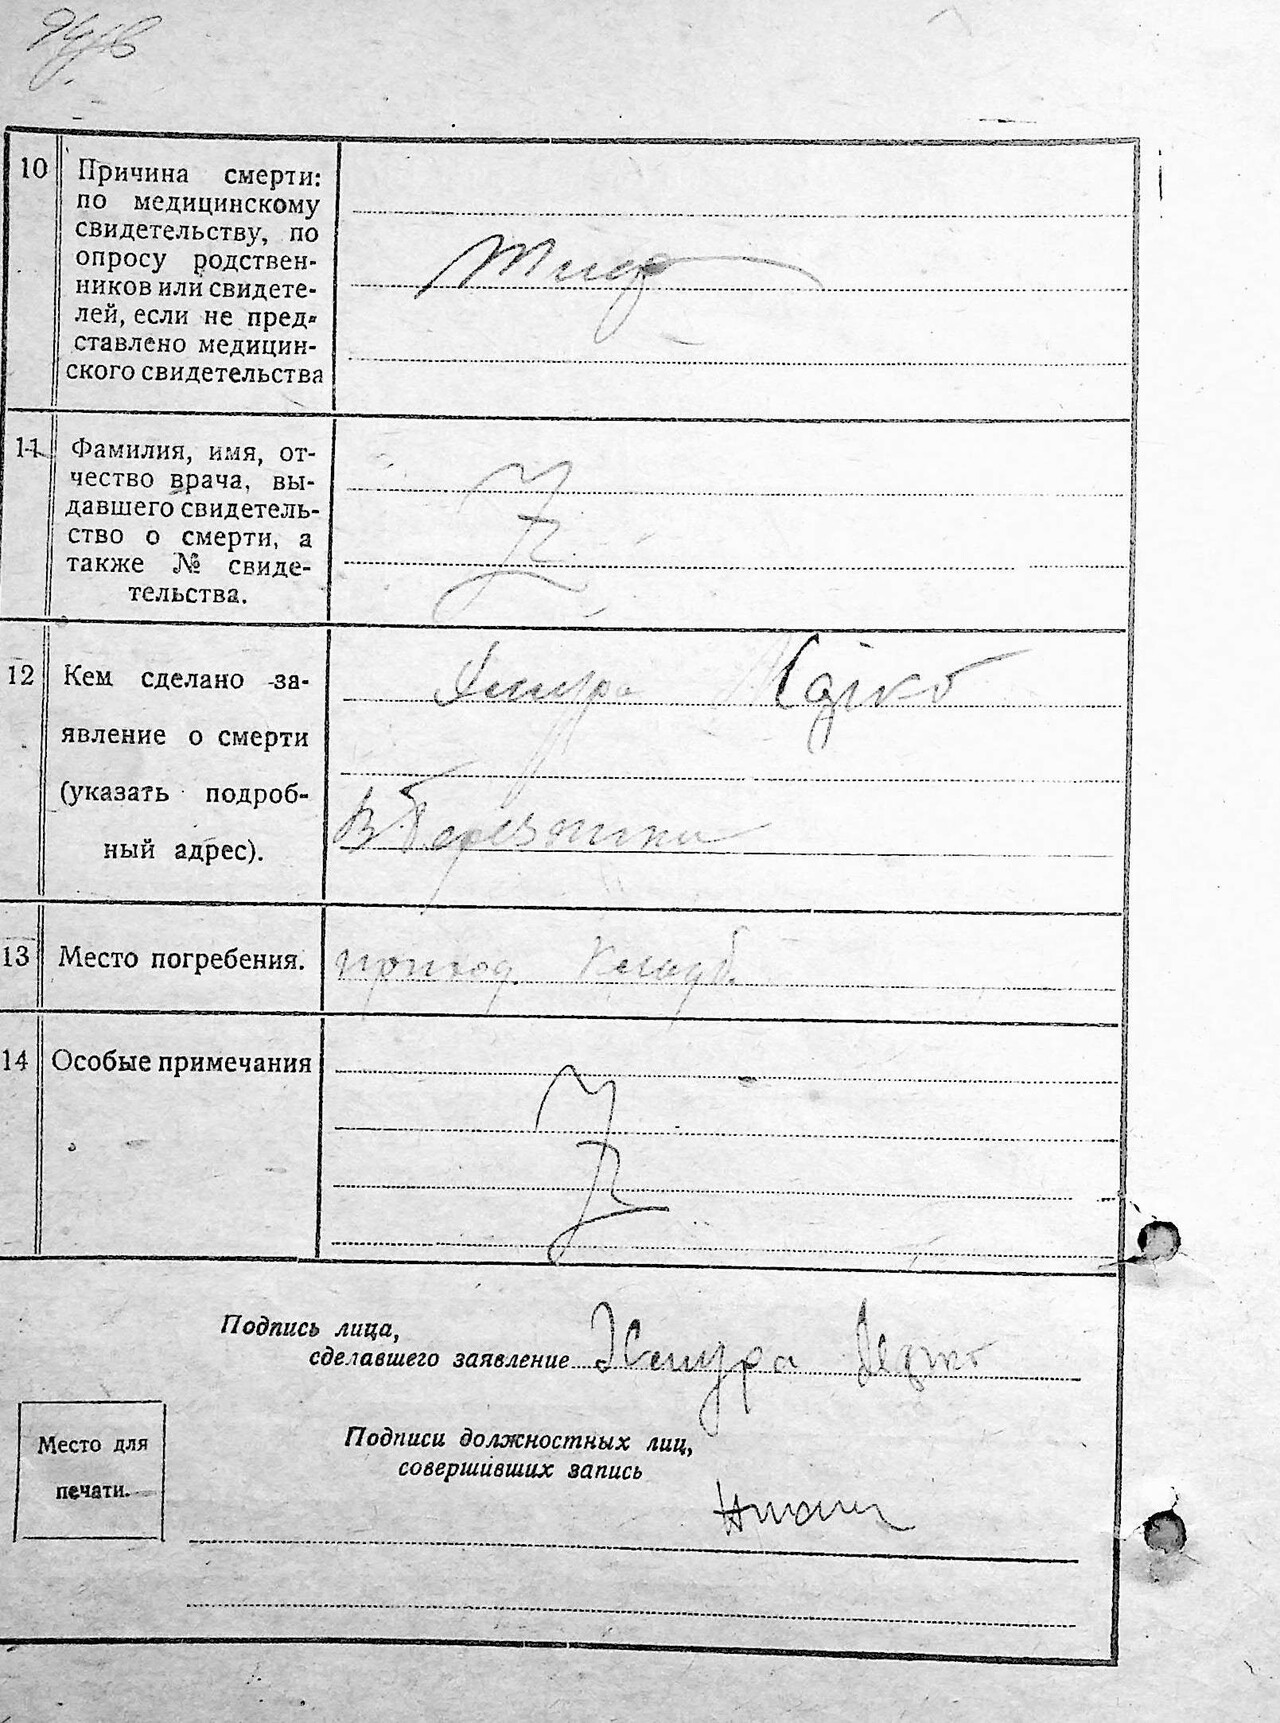 10
Причина смерти:
по медицинскому
свидетельству, по
опросу родствен-
ников или свидете-
лей, если не пред-
ставлено медицин-
ского свидетельства
Тиф
11
Фамилия, имя, от-
чество врача, вы-
давшего свидетель-
ство о смерти, а
также № свиде-
тельства.
Z
12
Кем сделано за-
явление о смерти
(указать подроб-
ный адрес).
13
Место погребения.
приход. кладб.
14
Особые примечания
Z
Подпись лица,
сделавшего заявление
Подписи должностных лиц,
совершивших запись
Место для
печати.